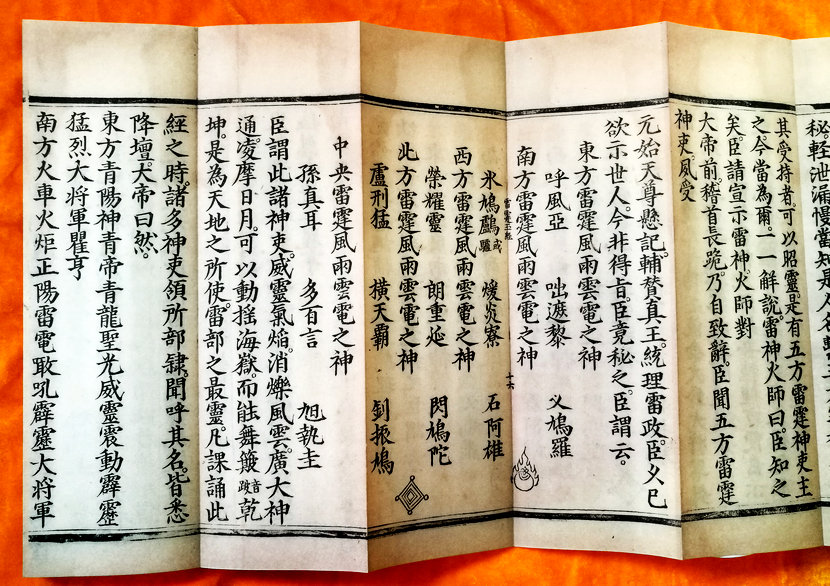 秘輕泄漏慢當知是人名
其受持者可以昭靈是有五方雷霆神吏主
之今當為爾一一解說雷神火師曰臣知之
矣臣請宣示雷神火師對
大帝前稽首長跪乃自致辭臣聞五方雷霆
神吏風受
元始天尊懸記輔替真王統理雷政臣久已
欲示世人今非得旨臣竟秘之臣謂云
東方雷霆風雨雲電之神
呼風亞 咄遮黎 乂鳩羅
南方雷霆風雨雲電之神
雷霆玉經 十六
氷鳩鸕或驢 煖炎寮 石阿雄
西方雷霆風雨雲電之神
榮耀靈 朗重𣇄 閃鳩陀
北方雷霆風雨雲電之神
盧刑猛 橫天霸 劉振鳩
中央雷霆風雨雲電之神
孫真耳 多百言 旭執圭
臣謂此諸神吏威靈氣焰消爍風雲廣大神
通凌摩日月可以動搖海嶽而能舞簸音跛乾
坤是為天地之所使雷部之最靈凡課誦此
經之時諸多神吏領所部隸聞呼其名皆悉
降壇大帝曰然
東方青陽神青帝青龍聖光威靈震動霹靂
猛烈大將軍瞿亨
南方火車火炬正陽雷電敢吼霹靂大將軍